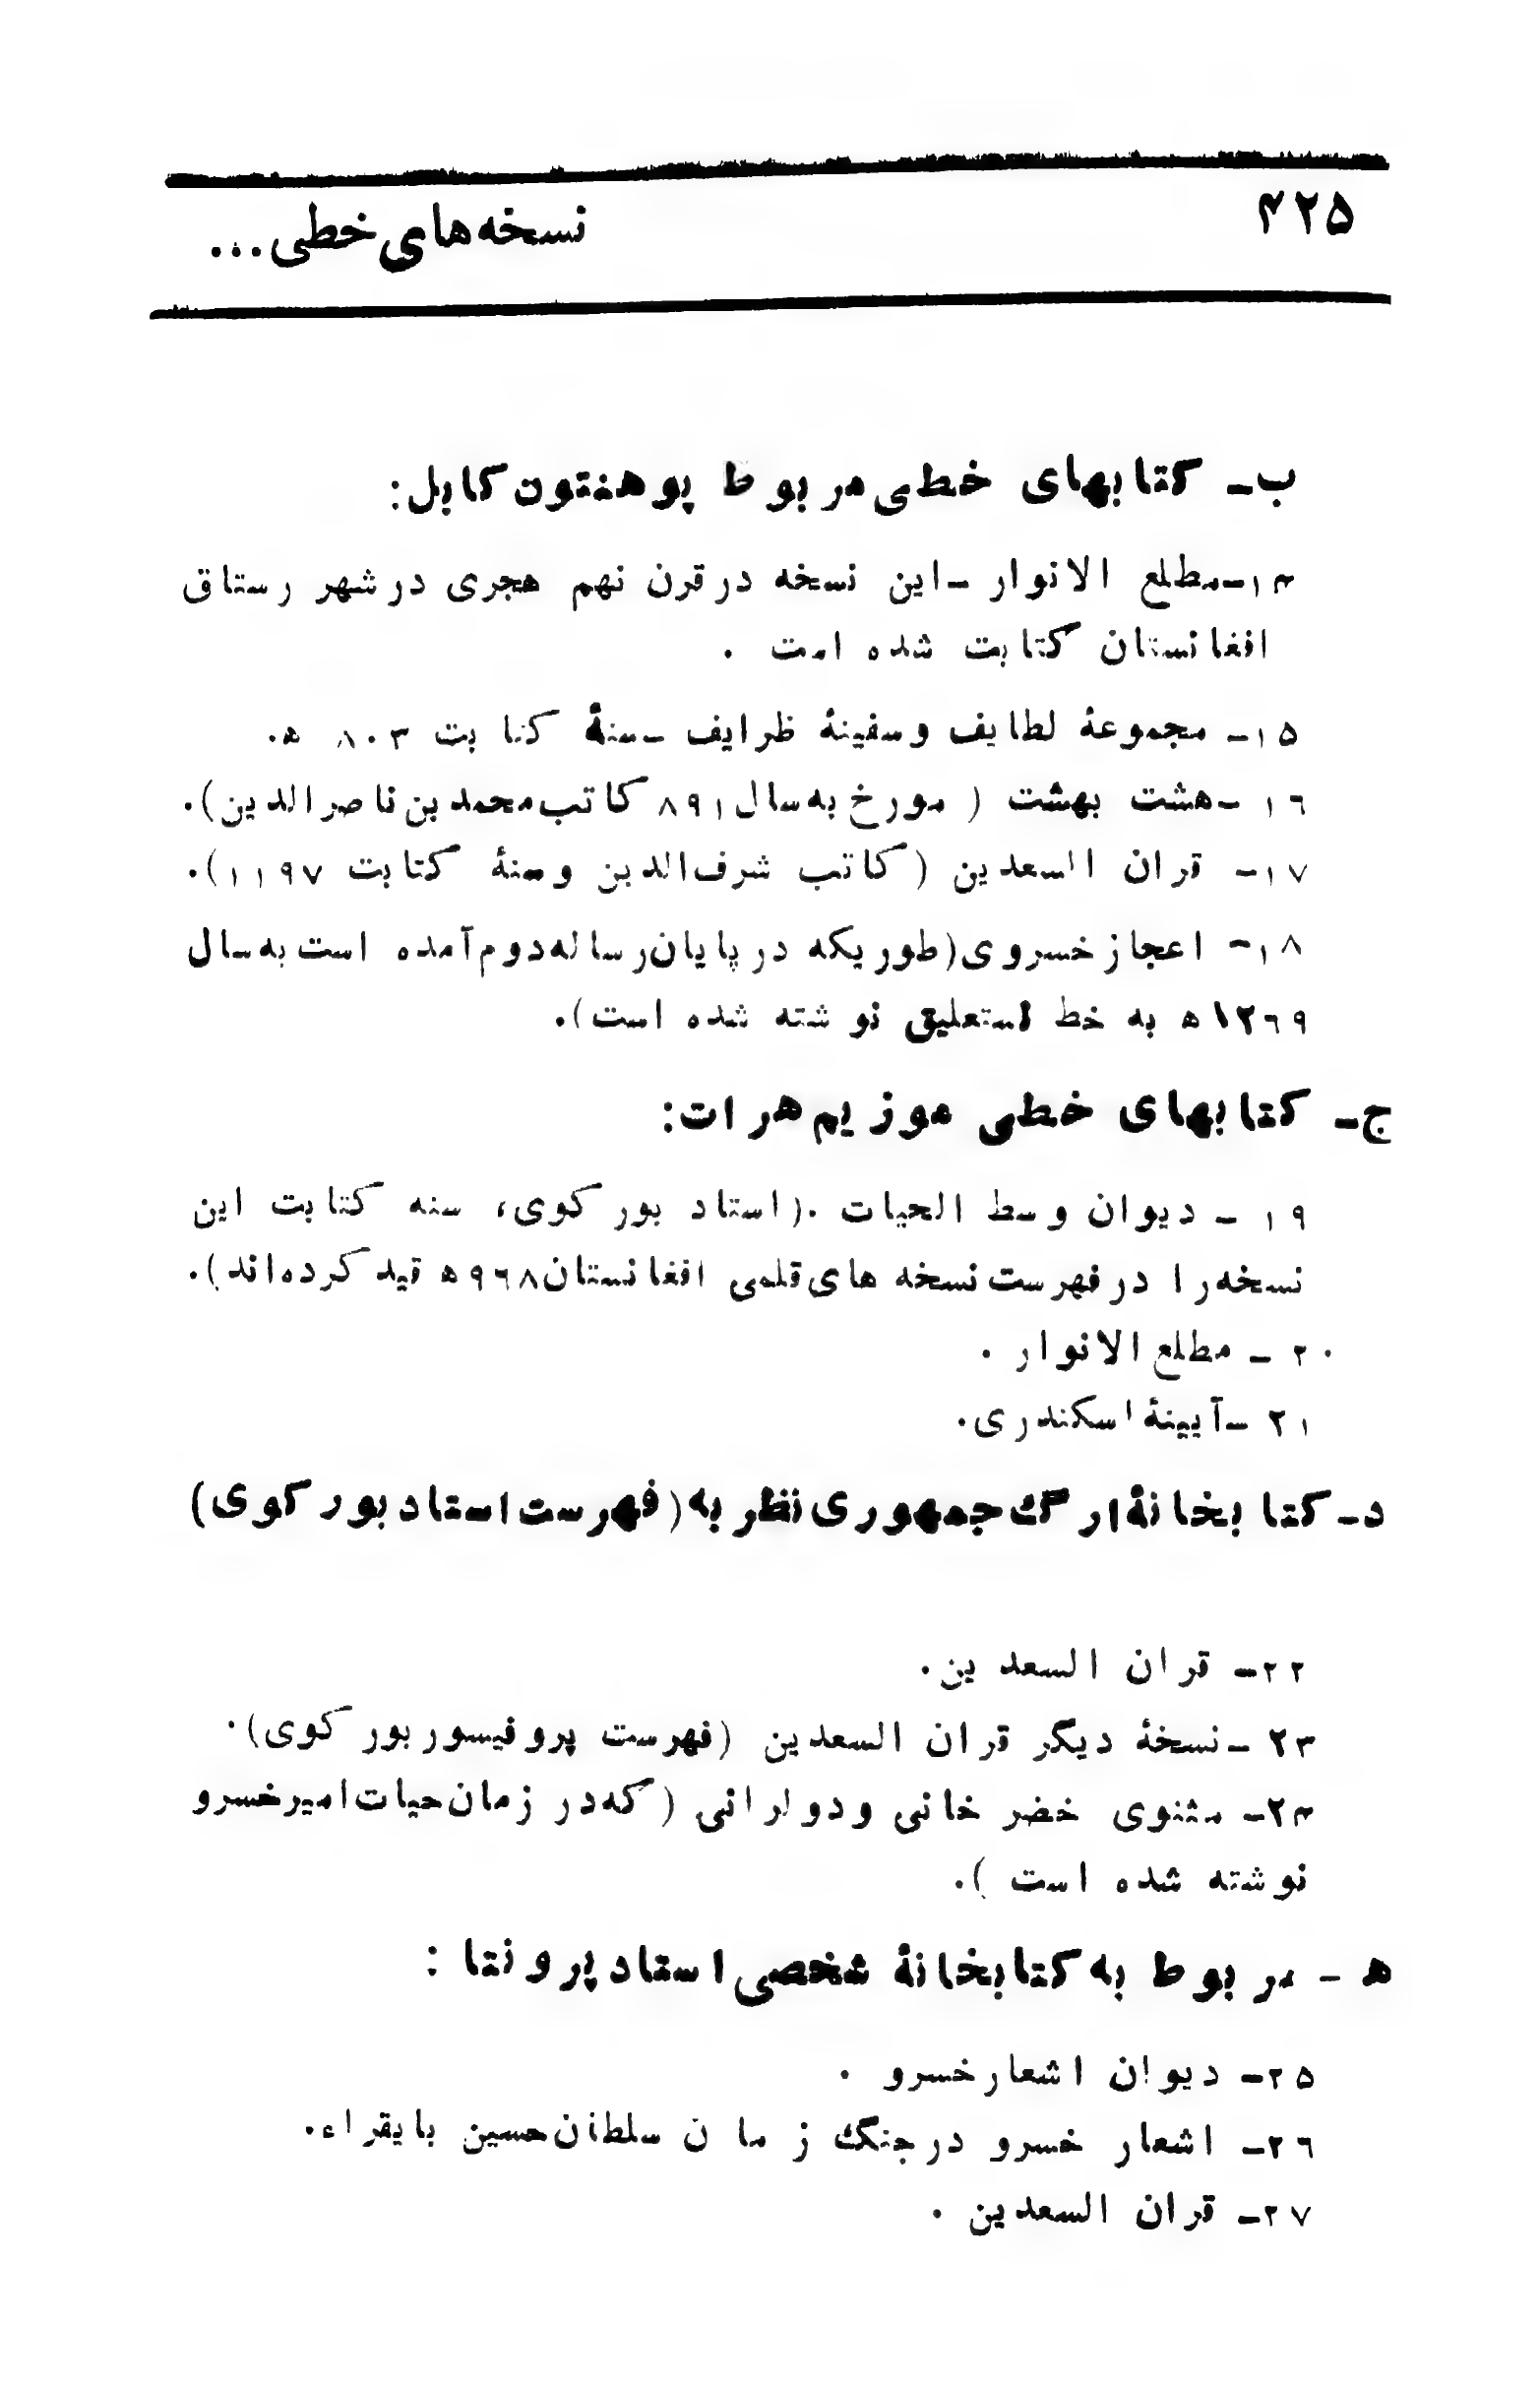 ۴۲۵
نسخه‌های خطی...
ب- کتابهای خطی مربوط پوهنتون کابل:
۱۴- مطلع الانوار - این نسخه در قرن نهم هجری در شهر رستاق
افغانستان کتابت شده است .
۱۵- مجموعهٔ لطایف و سفینهٔ ظرایف - سنهٔ کتابت ۸۰۳ ه.
۱۶- هشت بهشت ( مورخ به سال ۸۹۱ کاتب محمد بن ناصرالدین).
۱۷- قران السعدین (کاتب شرف‌الدین و سنهٔ کتابت ۱۱۹۷).
۱۸- اعجاز خسروی (طوریکه در پایان رساله دوم آمده است به سال
۱۲۶۹ ه به خط نستعلیق نوشته شده است).
ج- کتابهای خطی موزیم هرات:
۱۹ - دیوان وسط الحیات .(استاد بورکوی، سنه کتابت این
نسخه را در فهرست نسخه های قلمی افغانستان ۹۶۸ ه قید کرده‌اند).
۲۰ - مطلع الانوار .
۲۱ - آیینهٔ اسکندری.
د- کتابخانهٔ ارگ جمهوری نظر به (فهرست استاد بورکوی)
۲۲- قران السعدین.
۲۳ - نسخهٔ دیگر قران السعدین (فهرست پروفیسور بورکوی).
۲۴- مثنوی خضر خانی و دولرانی (که در زمان حیات امیر خسرو
نوشته شده است ).
ه - مربوط به کتابخانهٔ شخصی استاد پرونتا :
۲۵- دیوان اشعار خسرو .
۲۶- اشعار خسرو در جنگ زمان سلطان حسین بایقراء.
۲۷- قران السعدین .